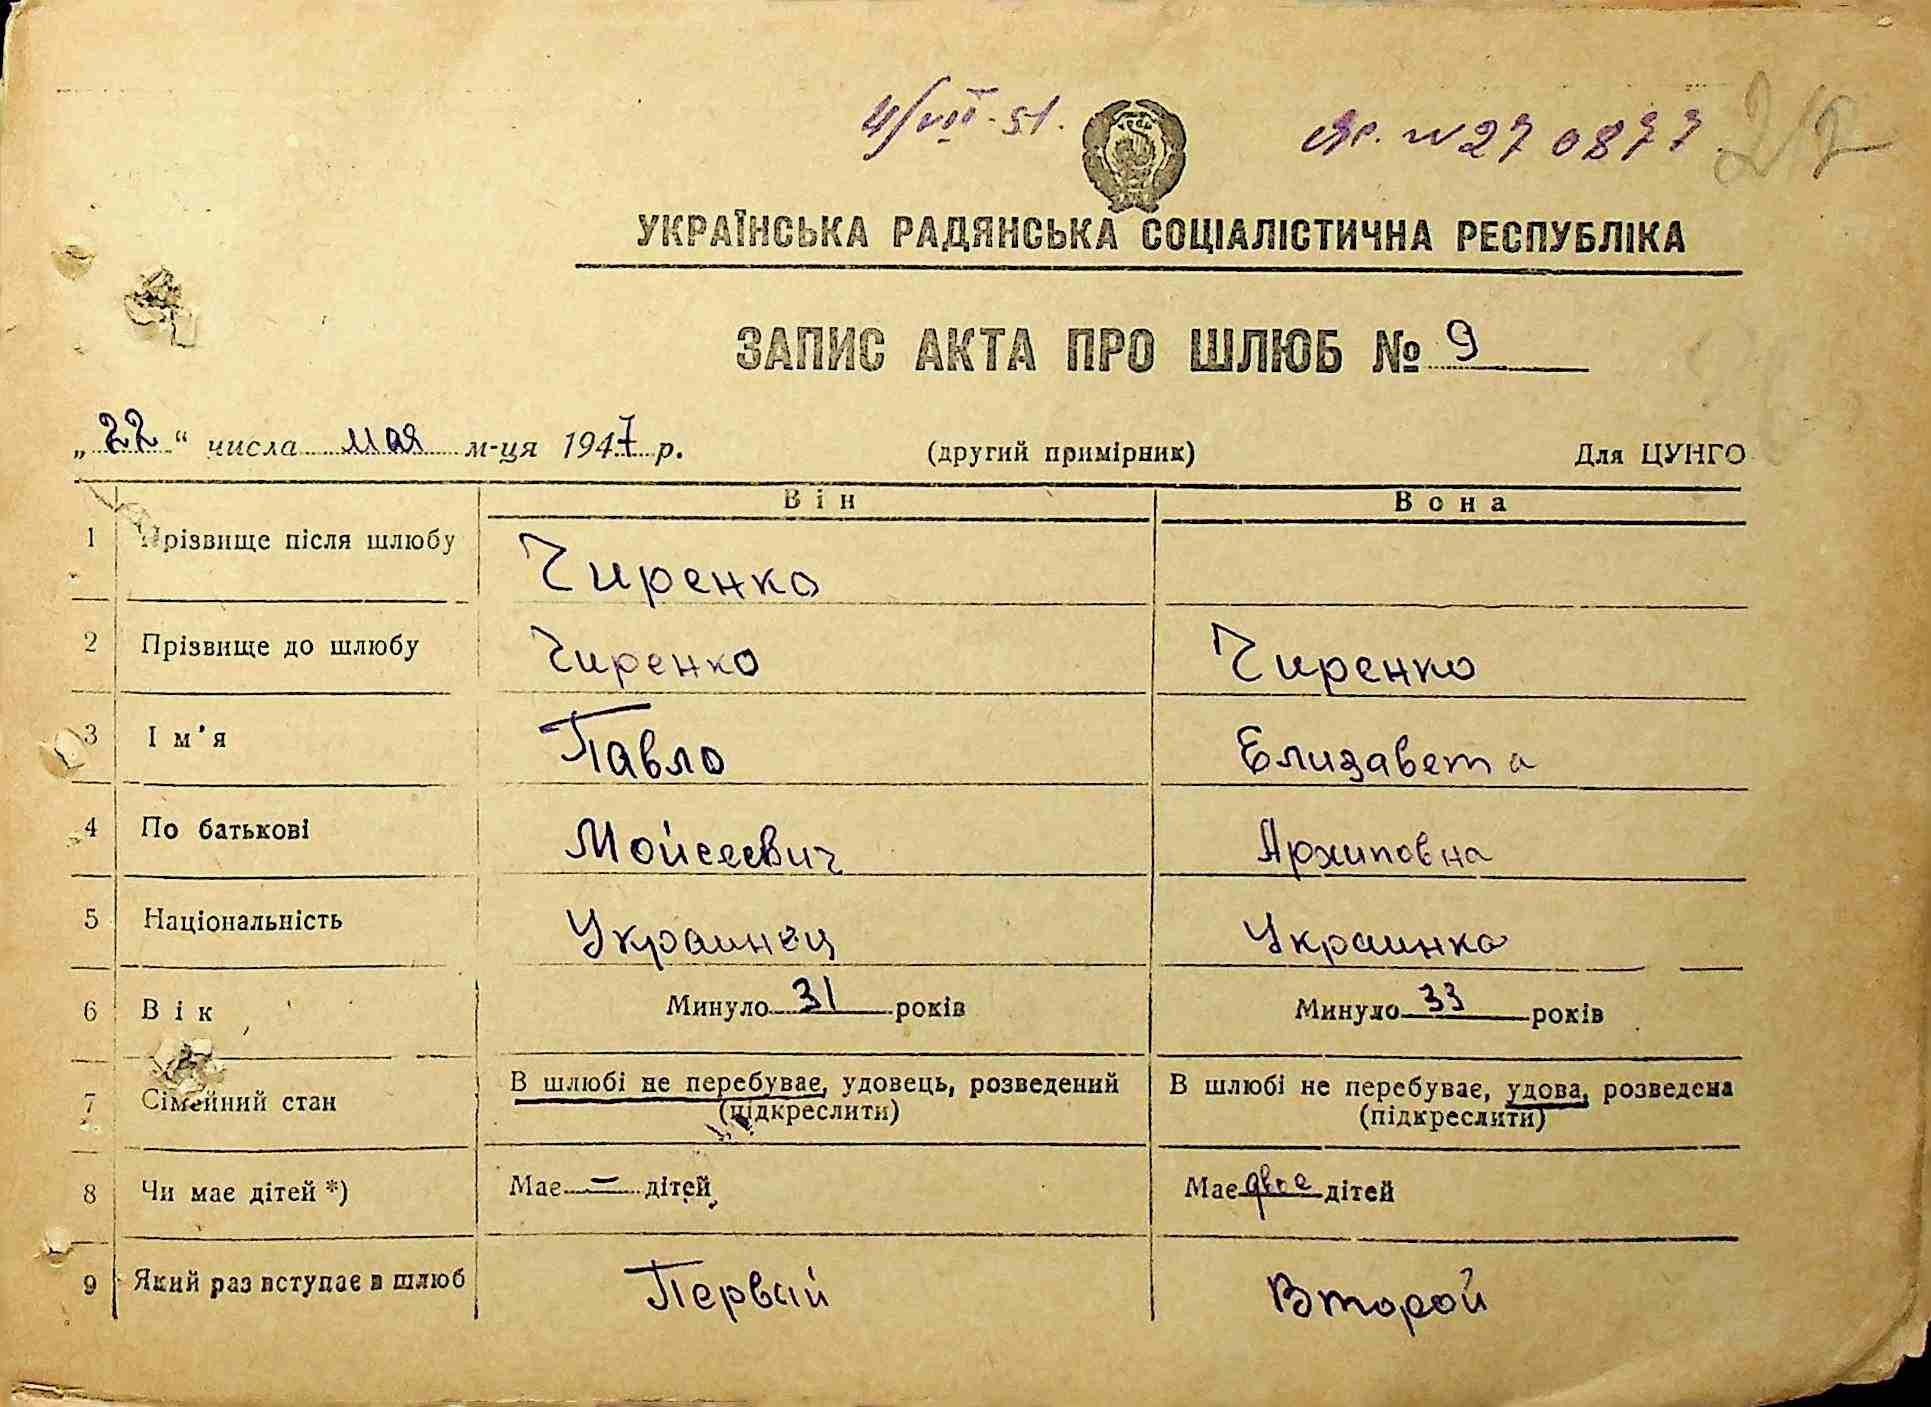 4/VII-51.
№ 270877
УКРАЇНСЬКА РАДЯНСЬКА СОЦІАЛІСТИЧНА РЕСПУБЛІКА
ЗАПИС АКТА ПРО ШЛЮБ № 9
„22“ числа мая м-ця 1947 р. (другий примірник) Для ЦУНГО
Він Вона
1 Прізвище після шлюбу Чиренко
2 Прізвище до шлюбу Чиренко Чиренко
3 Ім'я Павло Елизавета
4 По батькові Мойсеевич Архиповна
5 Національність Украинец Украинка
6 Вік Минуло 31 років Минуло 33 років
7 Сімейний стан В шлюбі не перебуває, удовець, розведений (підкреслити) В шлюбі не перебуває, удова, розведена (підкреслити)
8 Чи має дітей *) Має — дітей Має двое дітей
9 Який раз вступає в шлюб Первый Второй